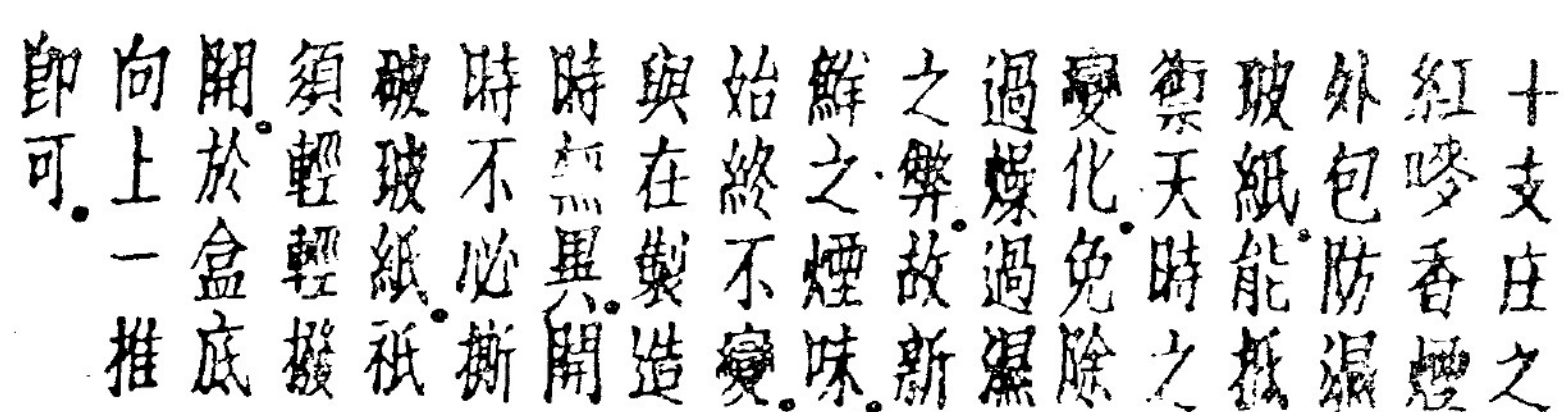 十支庄之
紅嘜香煙
外包防濕
玻紙。能抵
禦天時之
變化。免除
過燥過濕
之弊。故新
鮮之煙味。
始終不變。
與在製造
時無異。開
時不必撕
破玻紙。祇
須輕輕撥
開。於盒底
向上一推
即可。